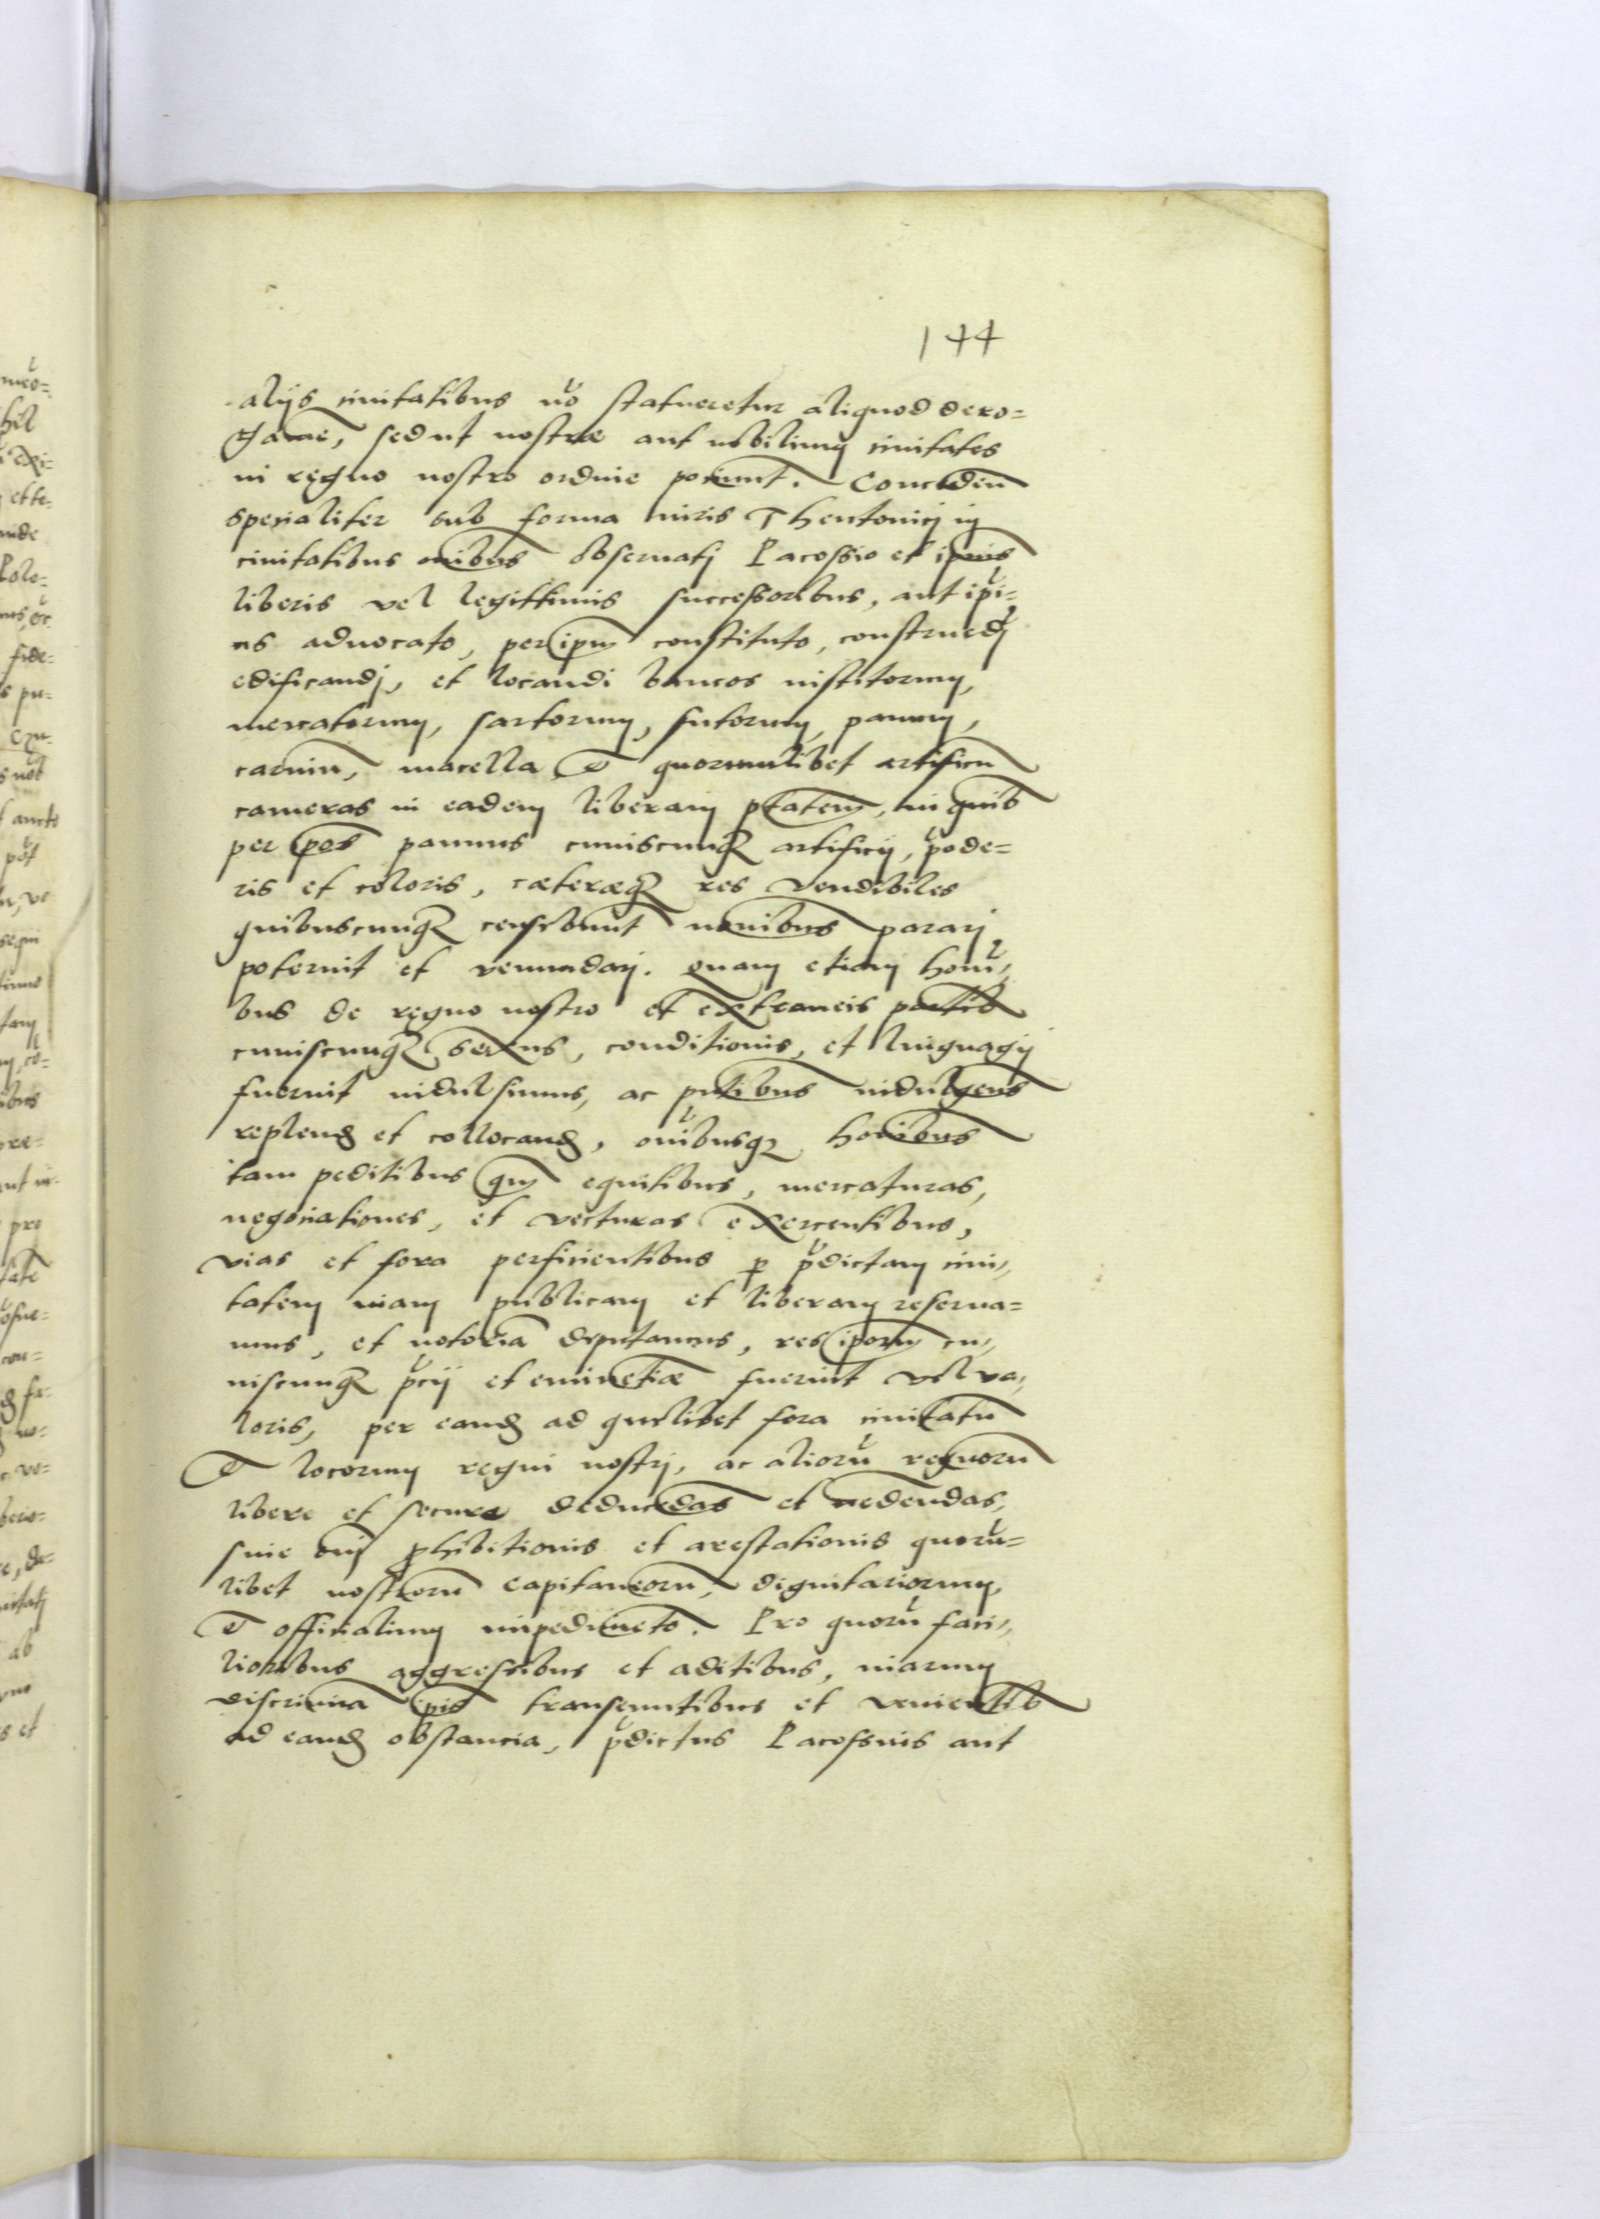 144
alijs ciuitatibus uo statueretur aliquod dero=
gatae, sed ut nostrae aut nobilium ciuitates
in regno nostro ordine potiunt. Conceden
specialiter sub forma iuris Theutonicj in
ciuitatibus oibus obseruatj Pacossio et ipius
liberis vel legittimis successoribus, aut ipi=
us aduocato, per ipm constituto, construedj
edificandj, et locandi bancos institorum,
mercatorum, sartorum, sutorum, pannum,
carnium, macella et quorumlibet artificu
cameras in eadem liberam ptatem, in quib
per ipos pannus cuiuscunq artificij, pode=
ris et coloris, caeteraeq res vendibiles
quibuscunq censebunt noibus pararj
poterint et venundarj. Quam etiam homi=
bus de regno nostro et extraneis partib
cuiuscunq sexus, conditionis, et linguagij
fuerint indulsimus, ac pntibus indulgens
replend et collocand, oibusq hoibus
tam peditibus qm equitibus, mercaturas,
negotiationes, et vecturas exercentibus,
vias et fora perficientibus p pdictam ciui=
tatem uiam publicam et liberam reserua=
mus, et notoria deputamus, res iporum cu=
iuscunq pcij et eminetiae fuerint vel va=
loris, per eand ad quaelibet fora ciuitatu
et locorum regni nostrj, ac alioru regnoru
libere et secure deducedas et uedendas,
sine oni phibitionis et arestationis quoru=
libet nostroru capitaneoru, dignitariorum,
et officialium impedimeto. Pro quoru faci=
lioribus aggressibus et aditibus, uiarum
discrimina ipis transeuntibus et venientib
ad eand obstancia, pdictus Pacossius aut